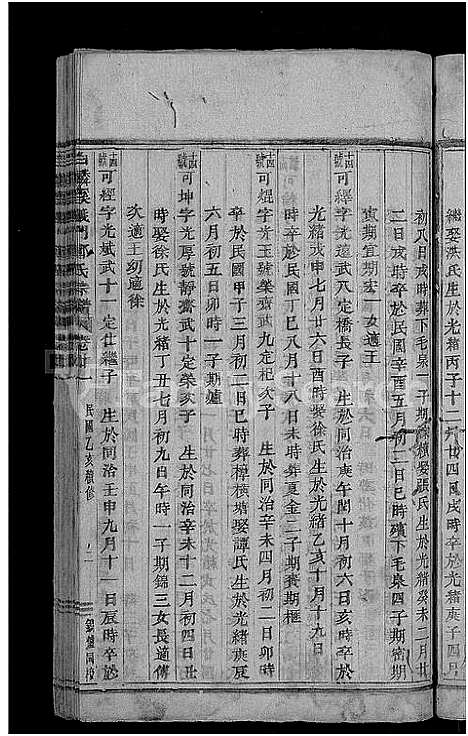 繼娶洪氏生於光緒丙子十二月廿四日戌時卒於光緒庚子四月
初八日戌時葬下毛泉一子期 續娶張氏生於光緒癸未二月廿
二日戌時卒於民國辛酉五月初二日巳時殯下毛泉四子期密期
寅期宜期宏一女適王
十四號可經字光遠武八定橋長子 生於同治庚午閏十月初六日亥時卒於
光緒戊申七月廿六日酉時娶徐氏生於光緒乙亥十月十九日
時卒於民國丁巳八月十八日未時葬夏金二子期賽期樞
十四號可焜字光玉號榮齋武九定杞次子 生於同治辛未四月初二日卯時
卒於民國甲子三月初二日巳時葬樟橫塘娶譚氏生於光緒庚辰
六月初五日卯時一子期爐
十四號可坤字光厚號靜齋武十定榮次子 生於同治辛未十二月初四日丑
時娶徐氏生於光緒丁丑七月初九日午時一子期錦三女長適傅
次適王幼適徐
十四號可經字光斌武十一定仕繼子 生於同治壬申九月十一日辰時卒於
白麟溪義門鄭氏宗譜 卷廿一 民國乙亥續修